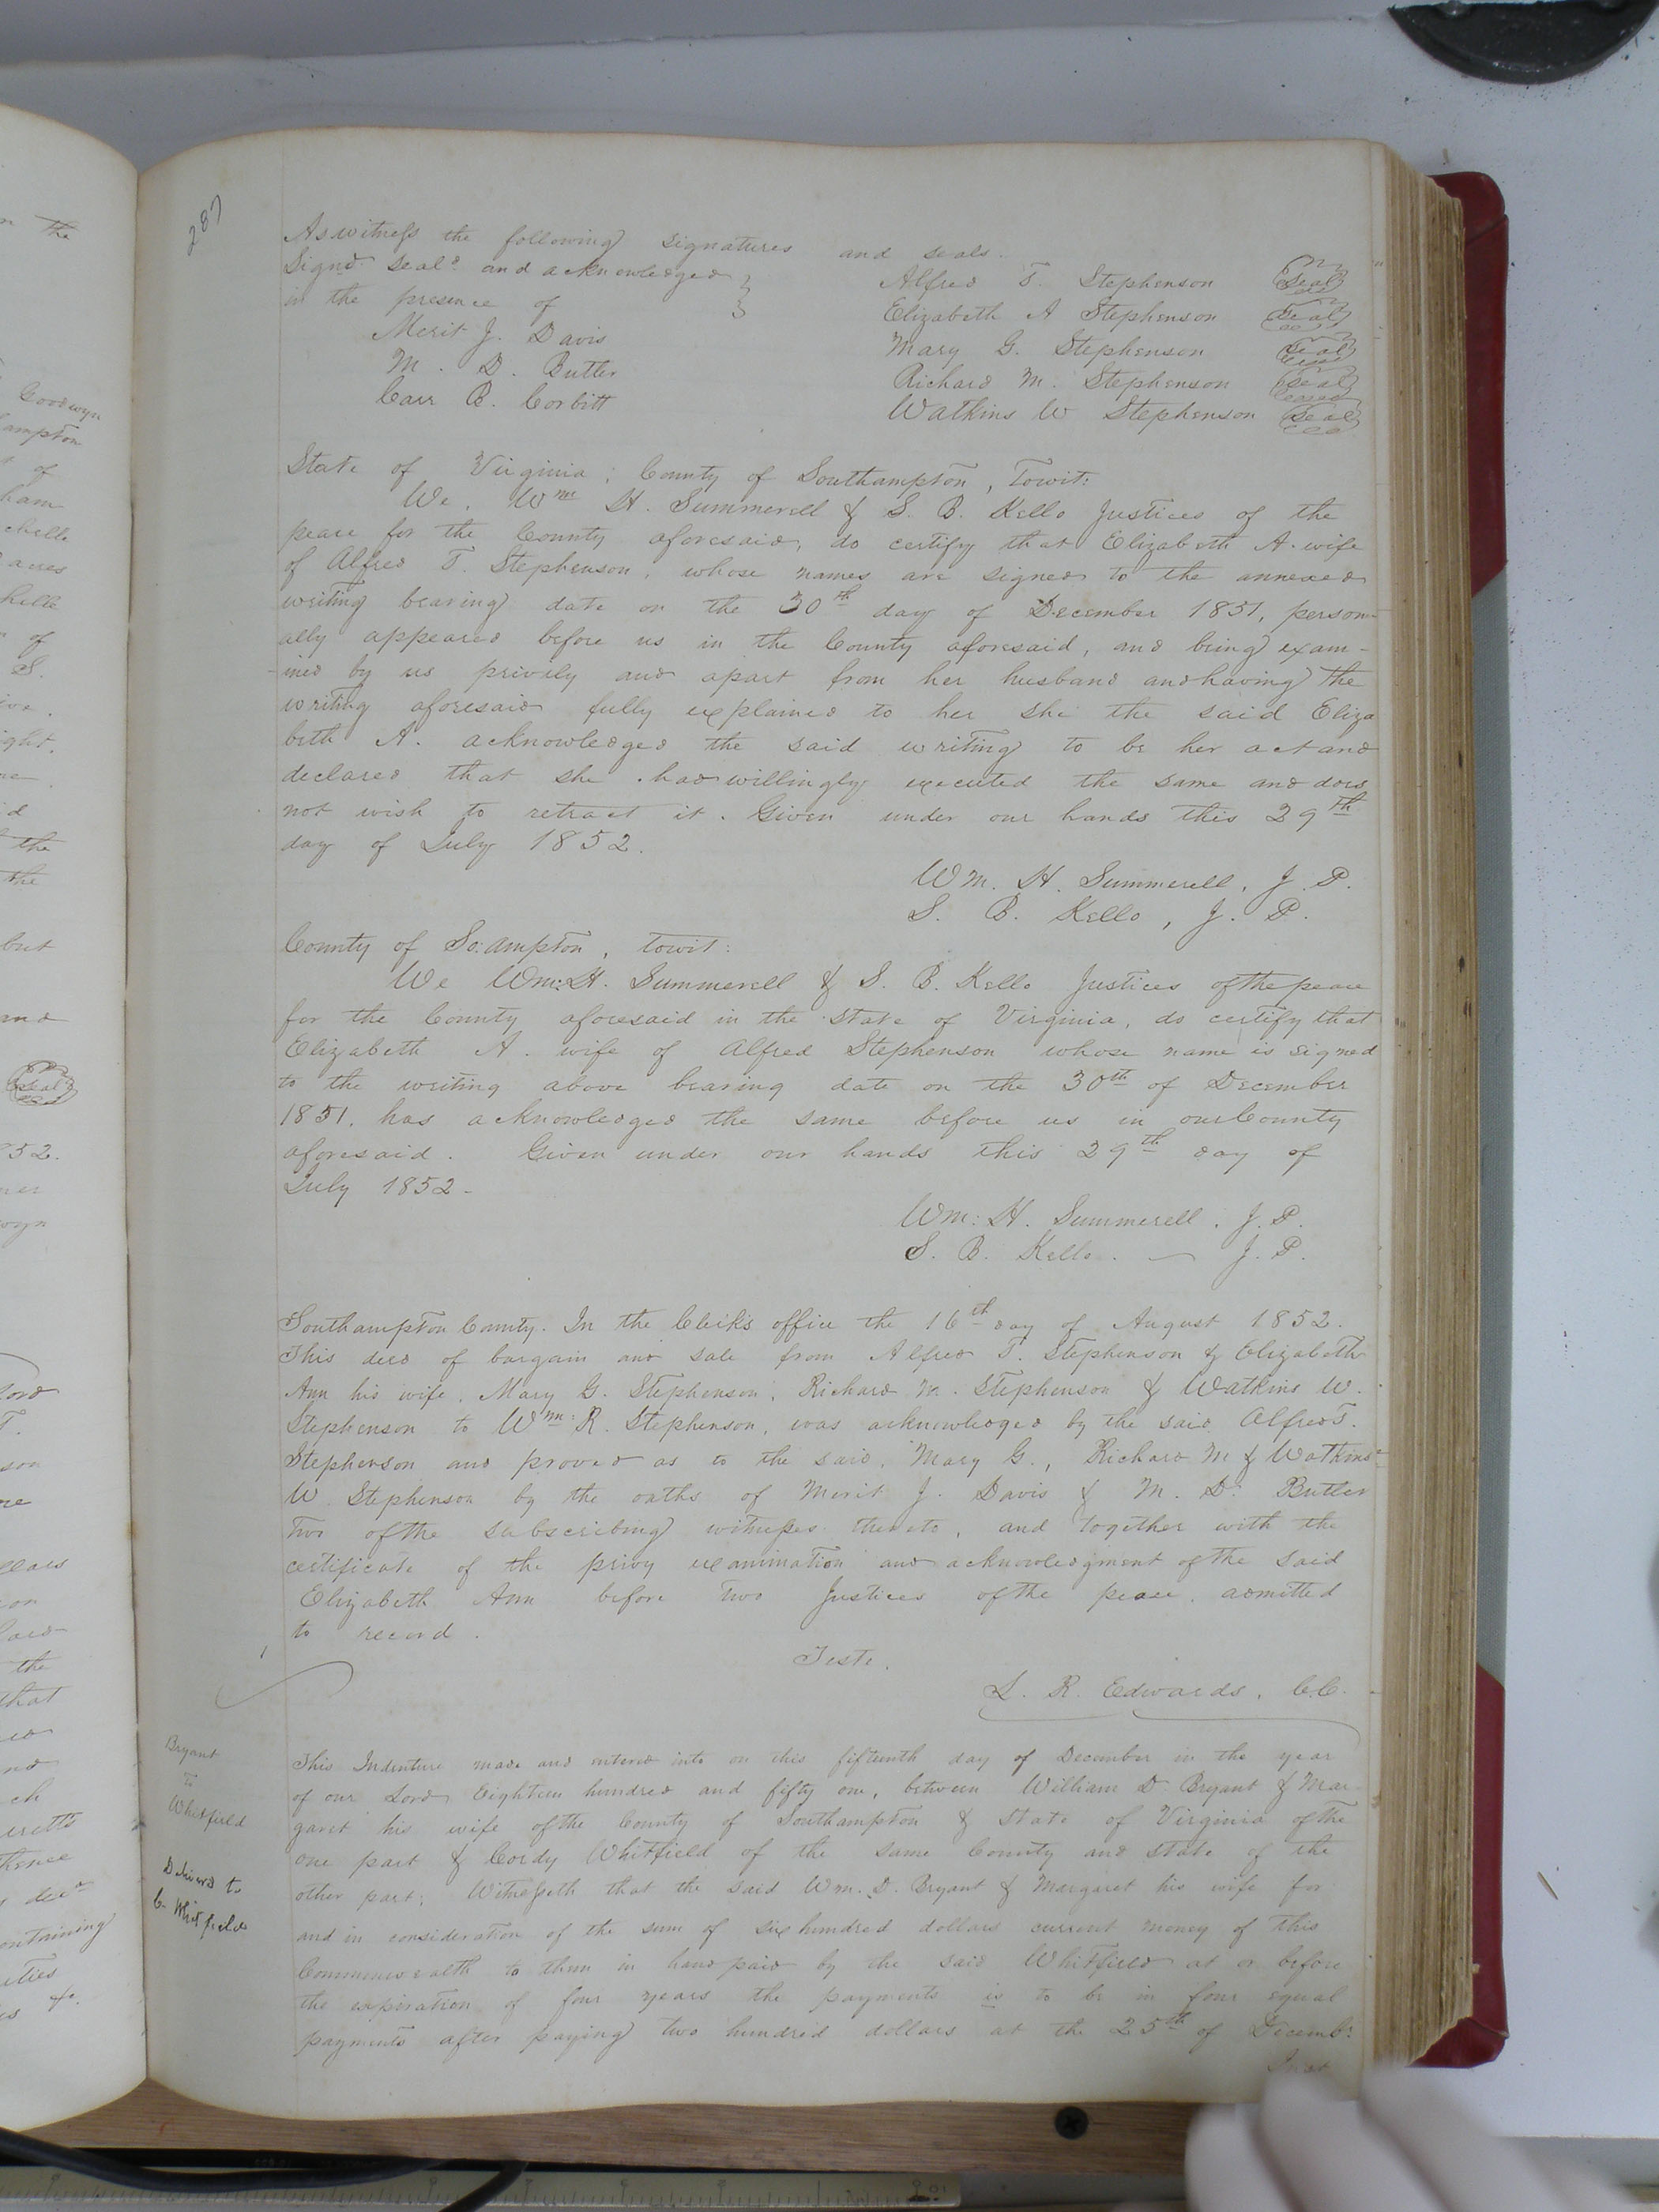 287
As witness the following signatures and seals.
Signd. Seald. and acknowledged
in the presence of
Merit J. Davis
M. D. Butler
Carr B. Corbitt
Alfred T. Stephenson Seal
Elizabeth A Stephenson Seal
Mary G. Stephenson Seal
Richard M. Stephenson Seal
Watkins W Stephenson Seal
State of Virginia; County of Southampton, Towit:
We, Wm H. Summerell & S. B. Kello Justices of the
peace for the County aforesaid, do certify that Elizabeth A. wife
of Alfred T. Stephenson, whose names are signed to the annexed
writing bearing date on the 30th day of December 1851, person-
ally appeared before us in the County aforesaid, and being exam-
-ined by us privily and apart from her husband and having the
writing aforesaid fully explained to her she the said Eliza
beth A. acknowledged the said writing to be her act and
declared that she had willingly executed the same and does
not wish to retract it. Given under our hands this 29th
day of July 1852.
Wm. H. Summerell, J. P.
S. B. Kello, J. P.
County of So:ampton, towit:
We Wm: H. Summerell & S. B. Kello Justices of the peace
for the County aforesaid in the State of Virginia, do certify that
Elizabeth A. wife of Alfred Stephenson whose name is signed
to the writing above bearing date on the 30th of December
1851, has acknowledged the same before us in our County
aforesaid. Given under our hands this 29th day of
July 1852.
Wm: H. Summerell, J. P.
S. B. Kello. — J. P.
Southampton County. In the Clerk's office the 16th day of August 1852.
This deed of bargain and sale from Alfred T. Stephenson & Elizabeth
Ann his wife, Mary G. Stephenson, Richard M. Stephenson & Watkins W.
Stephenson to Wm: R. Stephenson, was acknowledged by the said Alfred T.
Stephenson and proved as to the said, Mary G., Richard M & Watkins
W Stephenson by the oaths of Merit J. Davis & M. D. Butler
two of the subscribing witnesses thereto, and together with the
certificate of the privy examination and acknowledgment of the said
Elizabeth Ann before two Justices of the peace, admitted
to record.
Teste,
L. R. Edwards, C.C.
Bryant
To
Whitfield
Deliverd to
C. Whitfield
This Indenture made and entered into on this fifteenth day of December in the year
of our Lord Eighteen hundred and fifty one, between William D. Bryant & Mar-
garet his wife of the County of Southampton & State of Virginia of the
one part & Cordy Whitfield of the same County and State of the
other part; Witnesseth that the said Wm. D. Bryant & Margaret his wife for
and in consideration of the sum of six hundred dollars current money of this
Commonwealth to them in hand paid by the said Whitfield at or before
the expiration of four years the payments is to be in four equal
payments after paying two hundred dollars at the 25th of Decemb: